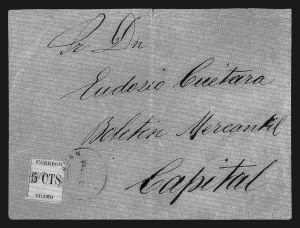 Sr Dn
Eudorio Cuétara
Boletin Mercantil
Capital
CORREOS
5 CTS
COAMO